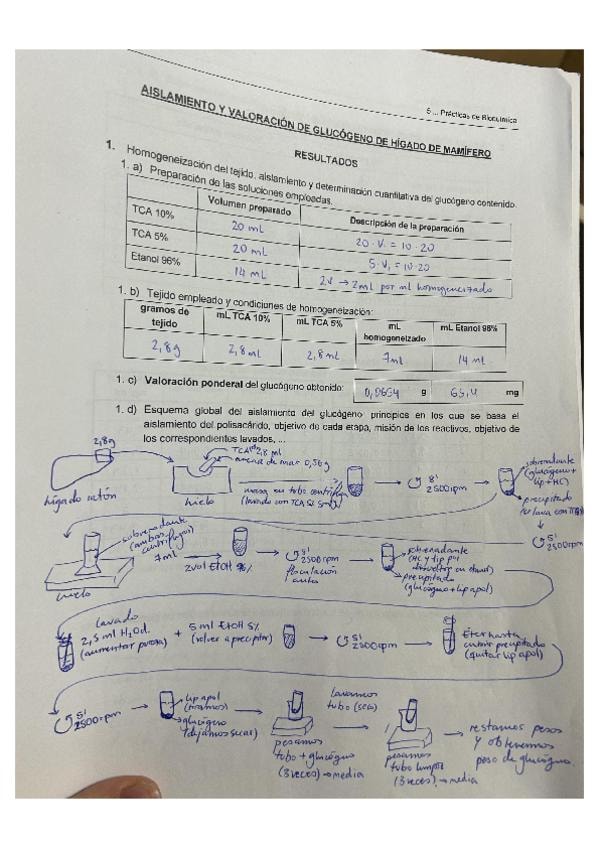 5... Prácticas de Bioquímica
AISLAMIENTO Y VALORACIÓN DE GLUCÓGENO DE HÍGADO DE MAMÍFERO
RESULTADOS
1. Homogeneización del tejido, aislamiento y determinación cuantitativa del glucógeno contenido.
1. a) Preparación de las soluciones empleadas.
Volumen preparado Descripción de la preparación
TCA 10% 20 mL 20 · V₁ = 10 · 20
TCA 5% 20 mL 5 · V₁ = 10 · 20
Etanol 96% 14 mL 2V → 2mL por ml homogeneizado
1. b) Tejido empleado y condiciones de homogeneización:
gramos de tejido mL TCA 10% mL TCA 5% mL homogeneizado mL Etanol 96%
2,8g 2,8 mL 2,8 mL 7ml 14 mL
1. c) Valoración ponderal del glucógeno obtenido: 0,0654 g 65,4 mg
1. d) Esquema global del aislamiento del glucógeno principios en los que se basa el
aislamiento del polisacárido, objetivo de cada etapa, misión de los reactivos, objetivo de
los correspondientes lavados, ...
2,8g
hígado ratón
TCA 2,8 ml
arena de mar 0,56g
hielo
(lavado con TCA 5% 5ml)
8'
2500rpm
sobrenadante
(glucógeno +
lip + HC)
precipitado
5'
2500rpm
sobrenadante
(ambas
7ml
hielo
2vol EtOH %
5'
2500rpm
sobrenadante
(HC y lip por
precipitado
(glucógeno + lip apol)
lavado
2,5 ml H₂Od.
(aumentar pureza)
+ 5 ml EtOH %
(volver a precipitar)
5'
2500rpm
Éter hasta
cubrir precipitado
(quitar lip apol)
5'
2500rpm
lip apol
(tiramos)
glucógeno
(dejamos secar)
pesamos
tubo + glucógeno
(3 veces) → media
lavamos
tubo (seca)
pesamos
tubo limpio
(3 veces) → media
restamos pesos
y obtenemos
peso de glucógeno